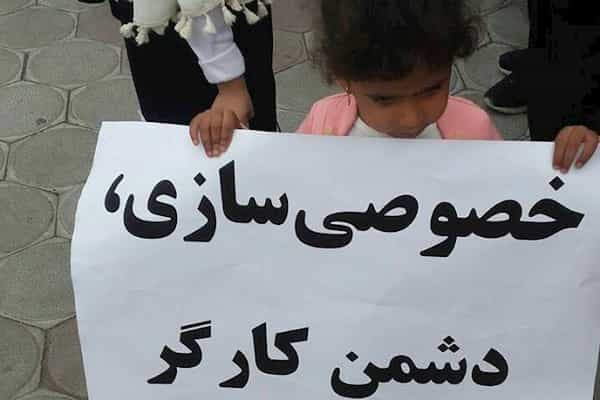 خصوصی‌سازی،
دشمن کارگر